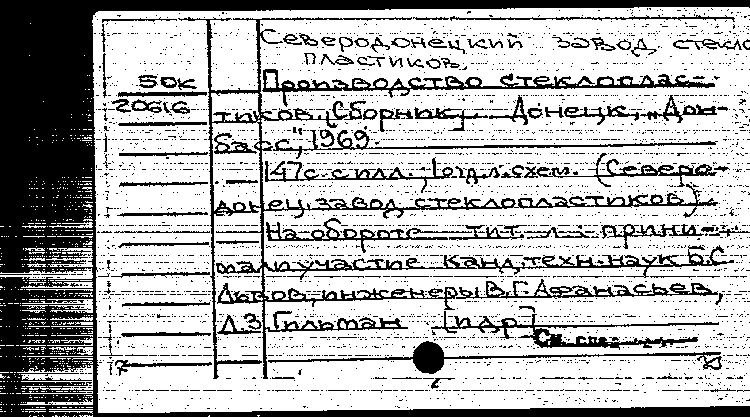 Северодонецкий завод стекло
пластиков.
50К Производство стеклоплас-
20616 тиков. [Сборник]. Донецк, „Дон-
басс", 1969.
147 с. с илл.; 1 отд. л. схем. (Северо-
донец. завод стеклопластиков).
На обороте тит. л.: прини-
мали участие канд. техн. наук Б.С.
Львов, инженеры В.Г. Афанасьев,
Л.З. Гильман [и др]
См. след.